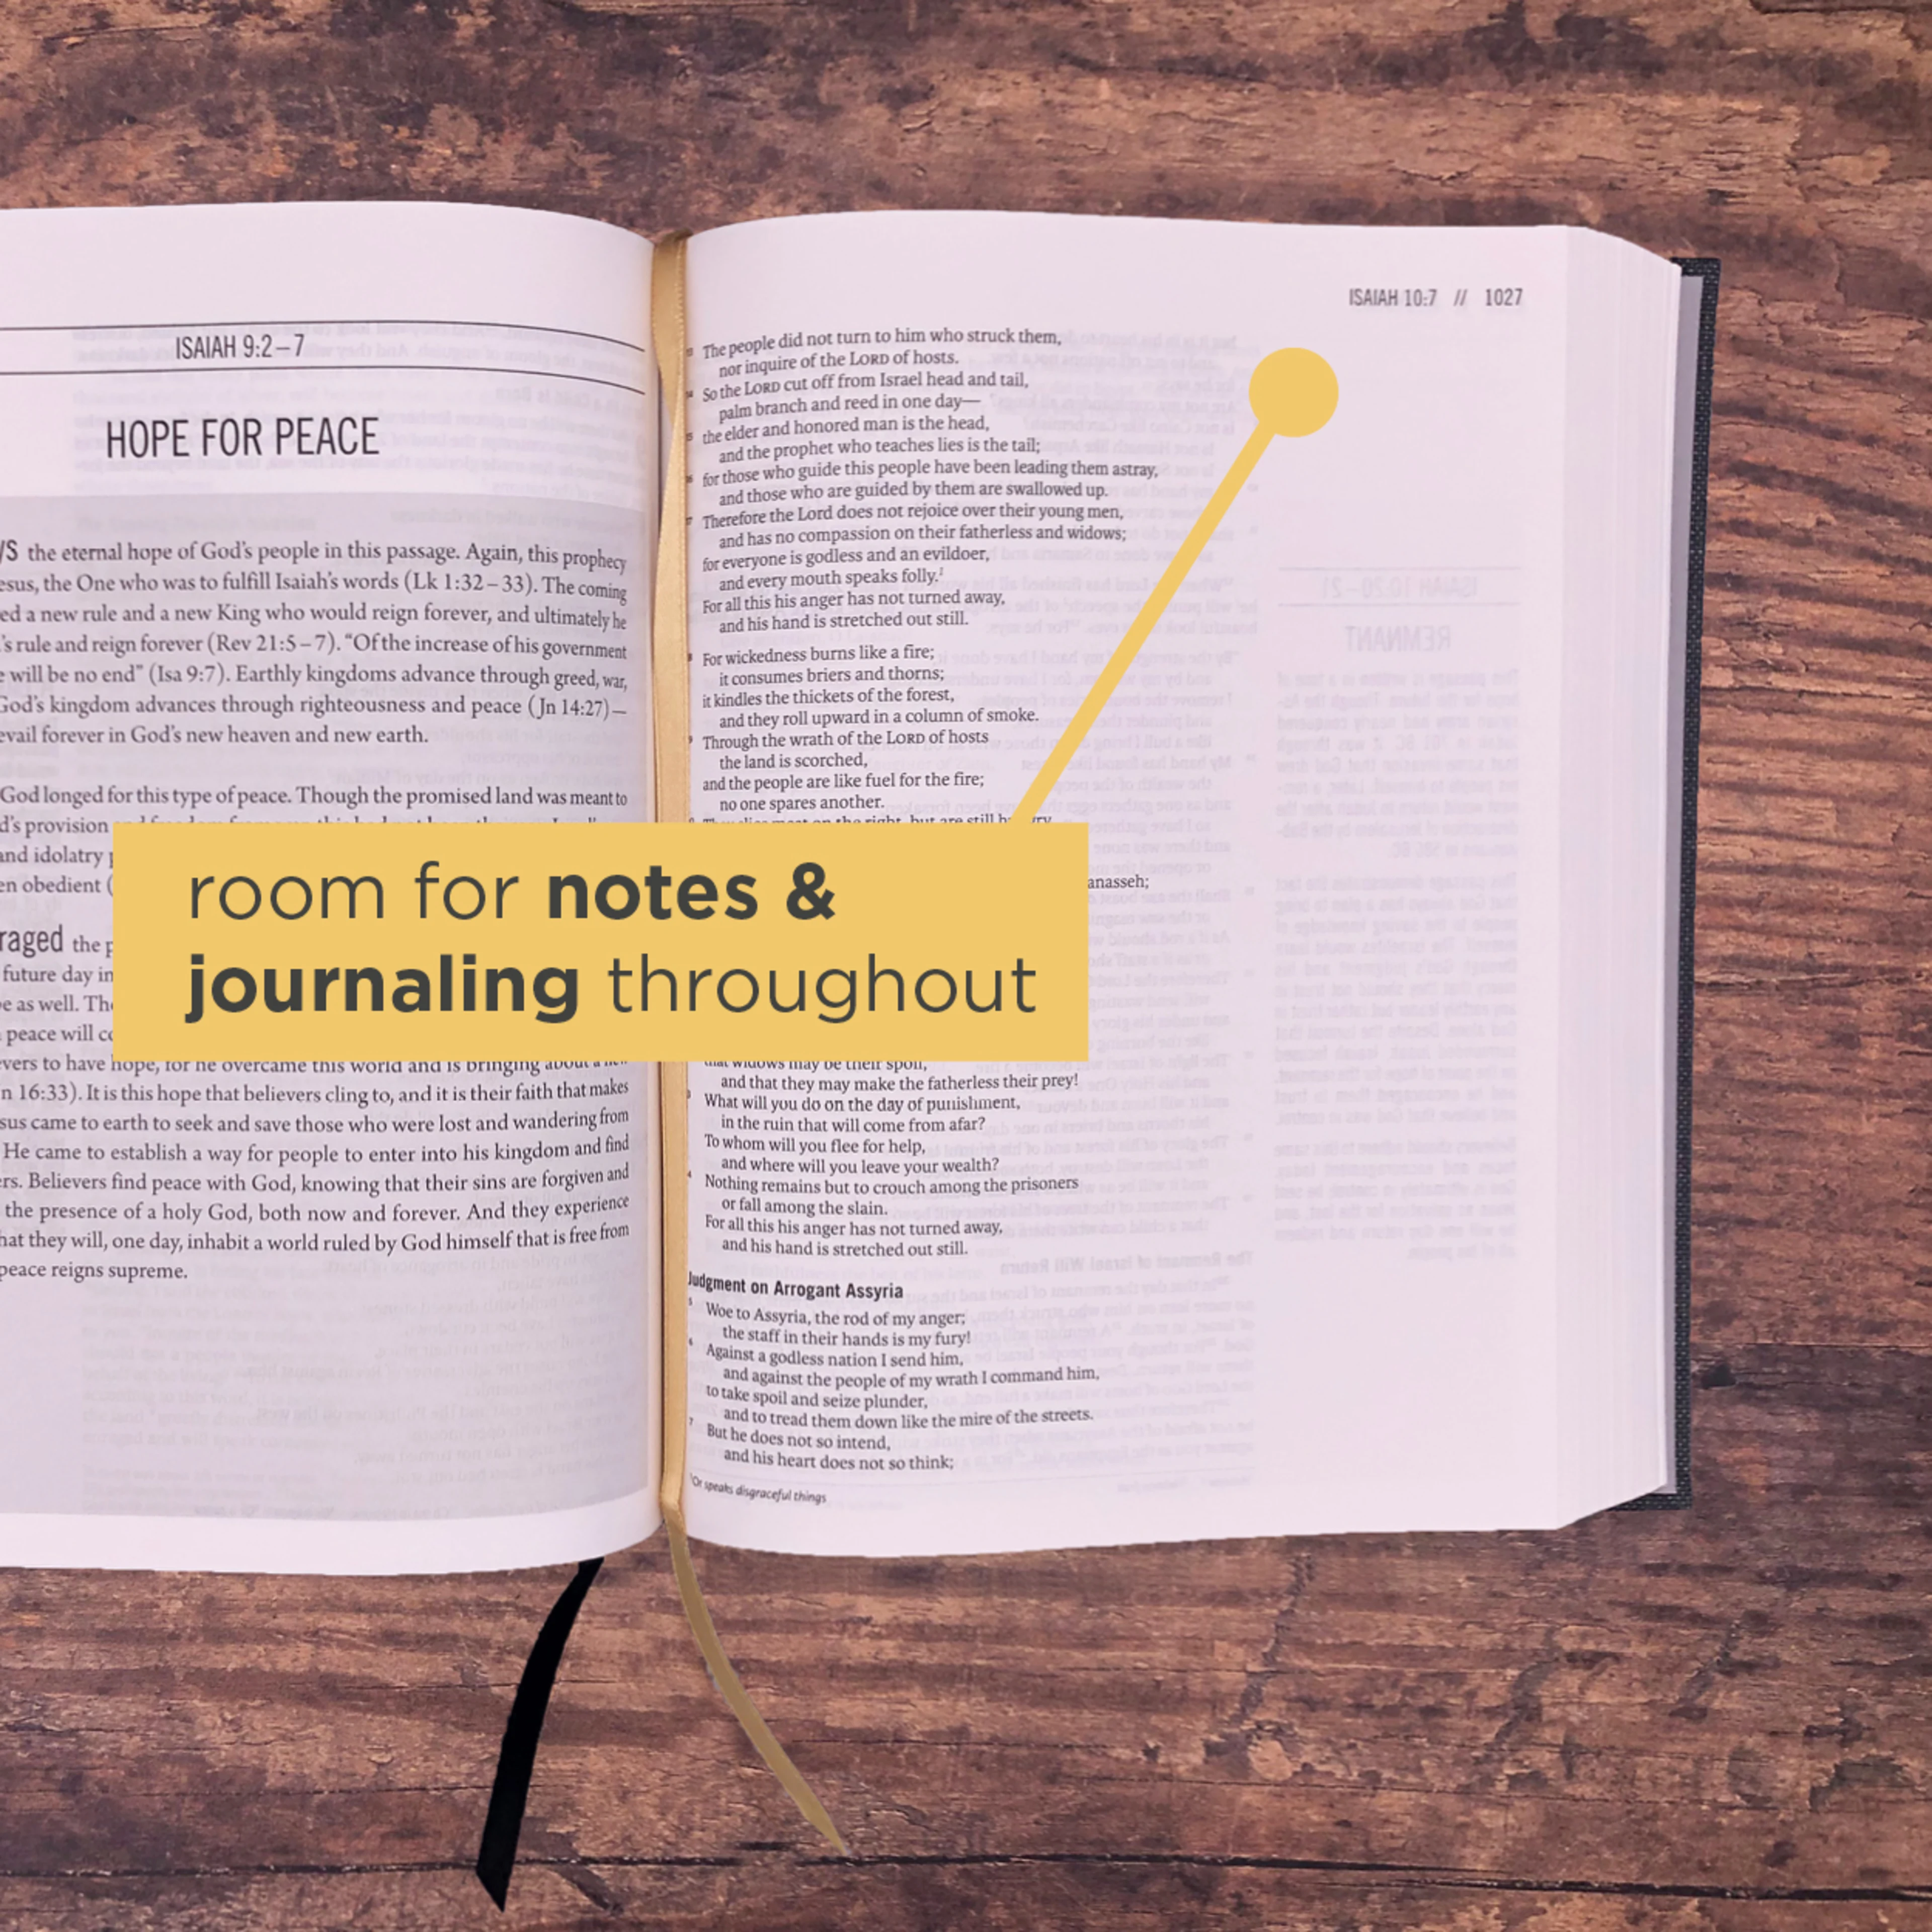 ISAIAH 9:2–7
HOPE FOR PEACE
the eternal hope of God's people in this passage. Again, this prophecy
the One who was to fulfill Isaiah's words (Lk 1:32–33). The coming
a new rule and a new King who would reign forever, and ultimately he
rule and reign forever (Rev 21:5–7). "Of the increase of his government
will be no end" (Isa 9:7). Earthly kingdoms advance through greed, war,
God's kingdom advances through righteousness and peace (Jn 14:27)—
forever in God's new heaven and new earth.
God longed for this type of peace. Though the promised land was meant to
provision
and idolatry
obedient (
the
future day in
as well.
peace will
to have hope, for he overcame this world and is bringing about a new
16:33). It is this hope that believers cling to, and it is their faith that makes
came to earth to seek and save those who were lost and wandering from
He came to establish a way for people to enter into his kingdom and find
Believers find peace with God, knowing that their sins are forgiven and
the presence of a holy God, both now and forever. And they experience
that they will, one day, inhabit a world ruled by God himself that is free from
peace reigns supreme.
ISAIAH 10:7 // 1027
The people did not turn to him who struck them,
nor inquire of the LORD of hosts.
So the LORD cut off from Israel head and tail,
palm branch and reed in one day—
the elder and honored man is the head,
and the prophet who teaches lies is the tail;
for those who guide this people have been leading them astray,
and those who are guided by them are swallowed up.
Therefore the Lord does not rejoice over their young men,
and has no compassion on their fatherless and widows;
for everyone is godless and an evildoer,
and every mouth speaks folly.¹
For all this his anger has not turned away,
and his hand is stretched out still.
For wickedness burns like a fire;
it consumes briers and thorns;
it kindles the thickets of the forest,
and they roll upward in a column of smoke.
Through the wrath of the LORD of hosts
the land is scorched,
and the people are like fuel for the fire;
no one spares another.
on the right, but are still
room for notes &
journaling throughout
that widows may be their spoil,
and that they may make the fatherless their prey!
3 What will you do on the day of punishment,
in the ruin that will come from afar?
To whom will you flee for help,
and where will you leave your wealth?
4 Nothing remains but to crouch among the prisoners
or fall among the slain.
For all this his anger has not turned away,
and his hand is stretched out still.
Judgment on Arrogant Assyria
5 Woe to Assyria, the rod of my anger;
the staff in their hands is my fury!
6 Against a godless nation I send him,
and against the people of my wrath I command him,
to take spoil and seize plunder,
and to tread them down like the mire of the streets.
7 But he does not so intend,
and his heart does not so think;
¹Or speaks disgraceful things